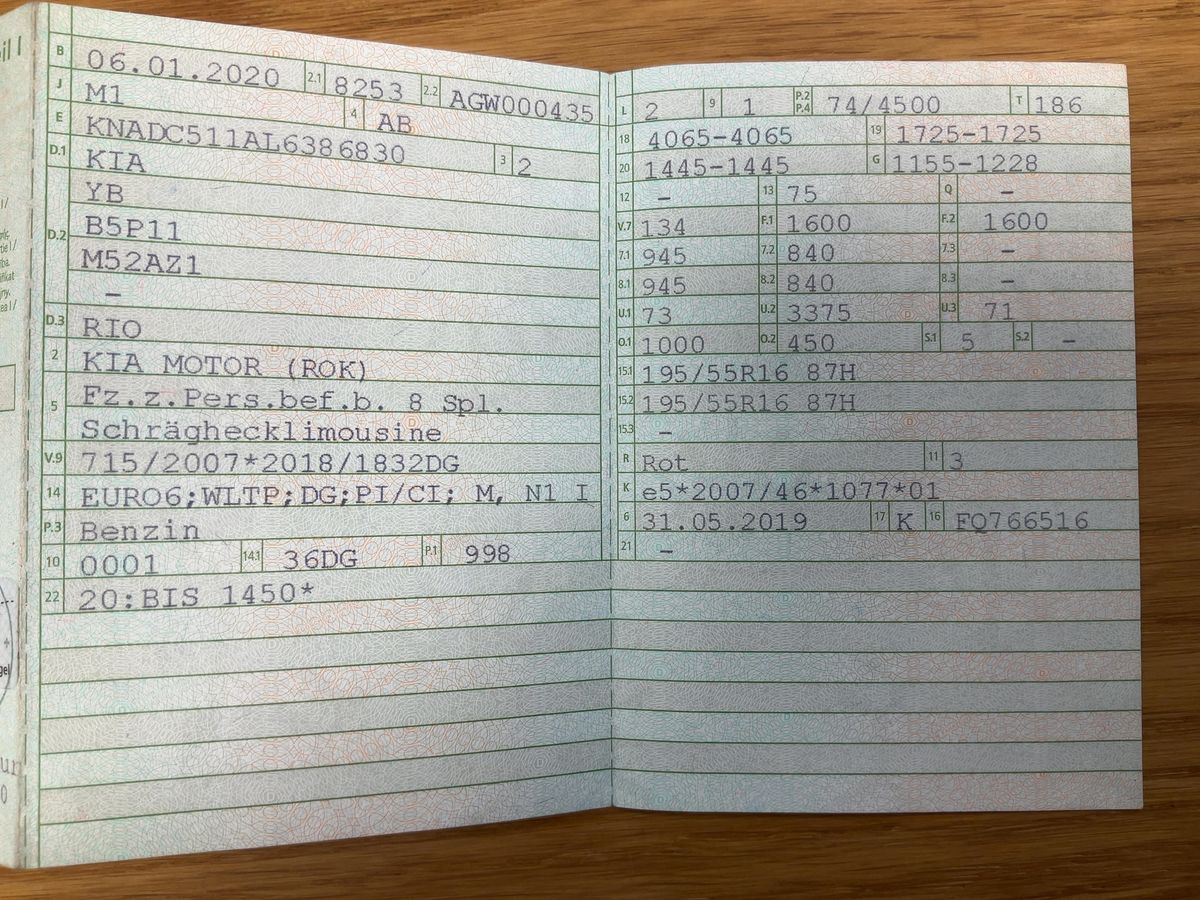 B 06.01.2020 2.1 8253 2.2 AGW000435
J M1 4 AB
E KNADC511AL6386830 3 2
D.1 KIA
D.2 YB
B5P11
M52AZ1
–
D.3 RIO
2 KIA MOTOR (ROK)
5 Fz.z.Pers.bef.b. 8 Spl.
Schräghecklimousine
V.9 715/2007*2018/1832DG
14 EURO6;WLTP;DG;PI/CI; M, N1 I
P.3 Benzin
10 0001 14.1 36DG P.1 998
22 20:BIS 1450*
L 2 9 1 P.2 P.4 74/4500 T 186
18 4065-4065 19 1725-1725
20 1445-1445 G 1155-1228
12 – 13 75 Q –
V.7 134 F.1 1600 F.2 1600
7.1 945 7.2 840 7.3 –
8.1 945 8.2 840 8.3 –
U.1 73 U.2 3375 U.3 71
O.1 1000 O.2 450 S.1 5 S.2 –
15.1 195/55R16 87H
15.2 195/55R16 87H
15.3 –
R Rot 11 3
K e5*2007/46*1077*01
6 31.05.2019 17 K 16 FQ766516
21 –